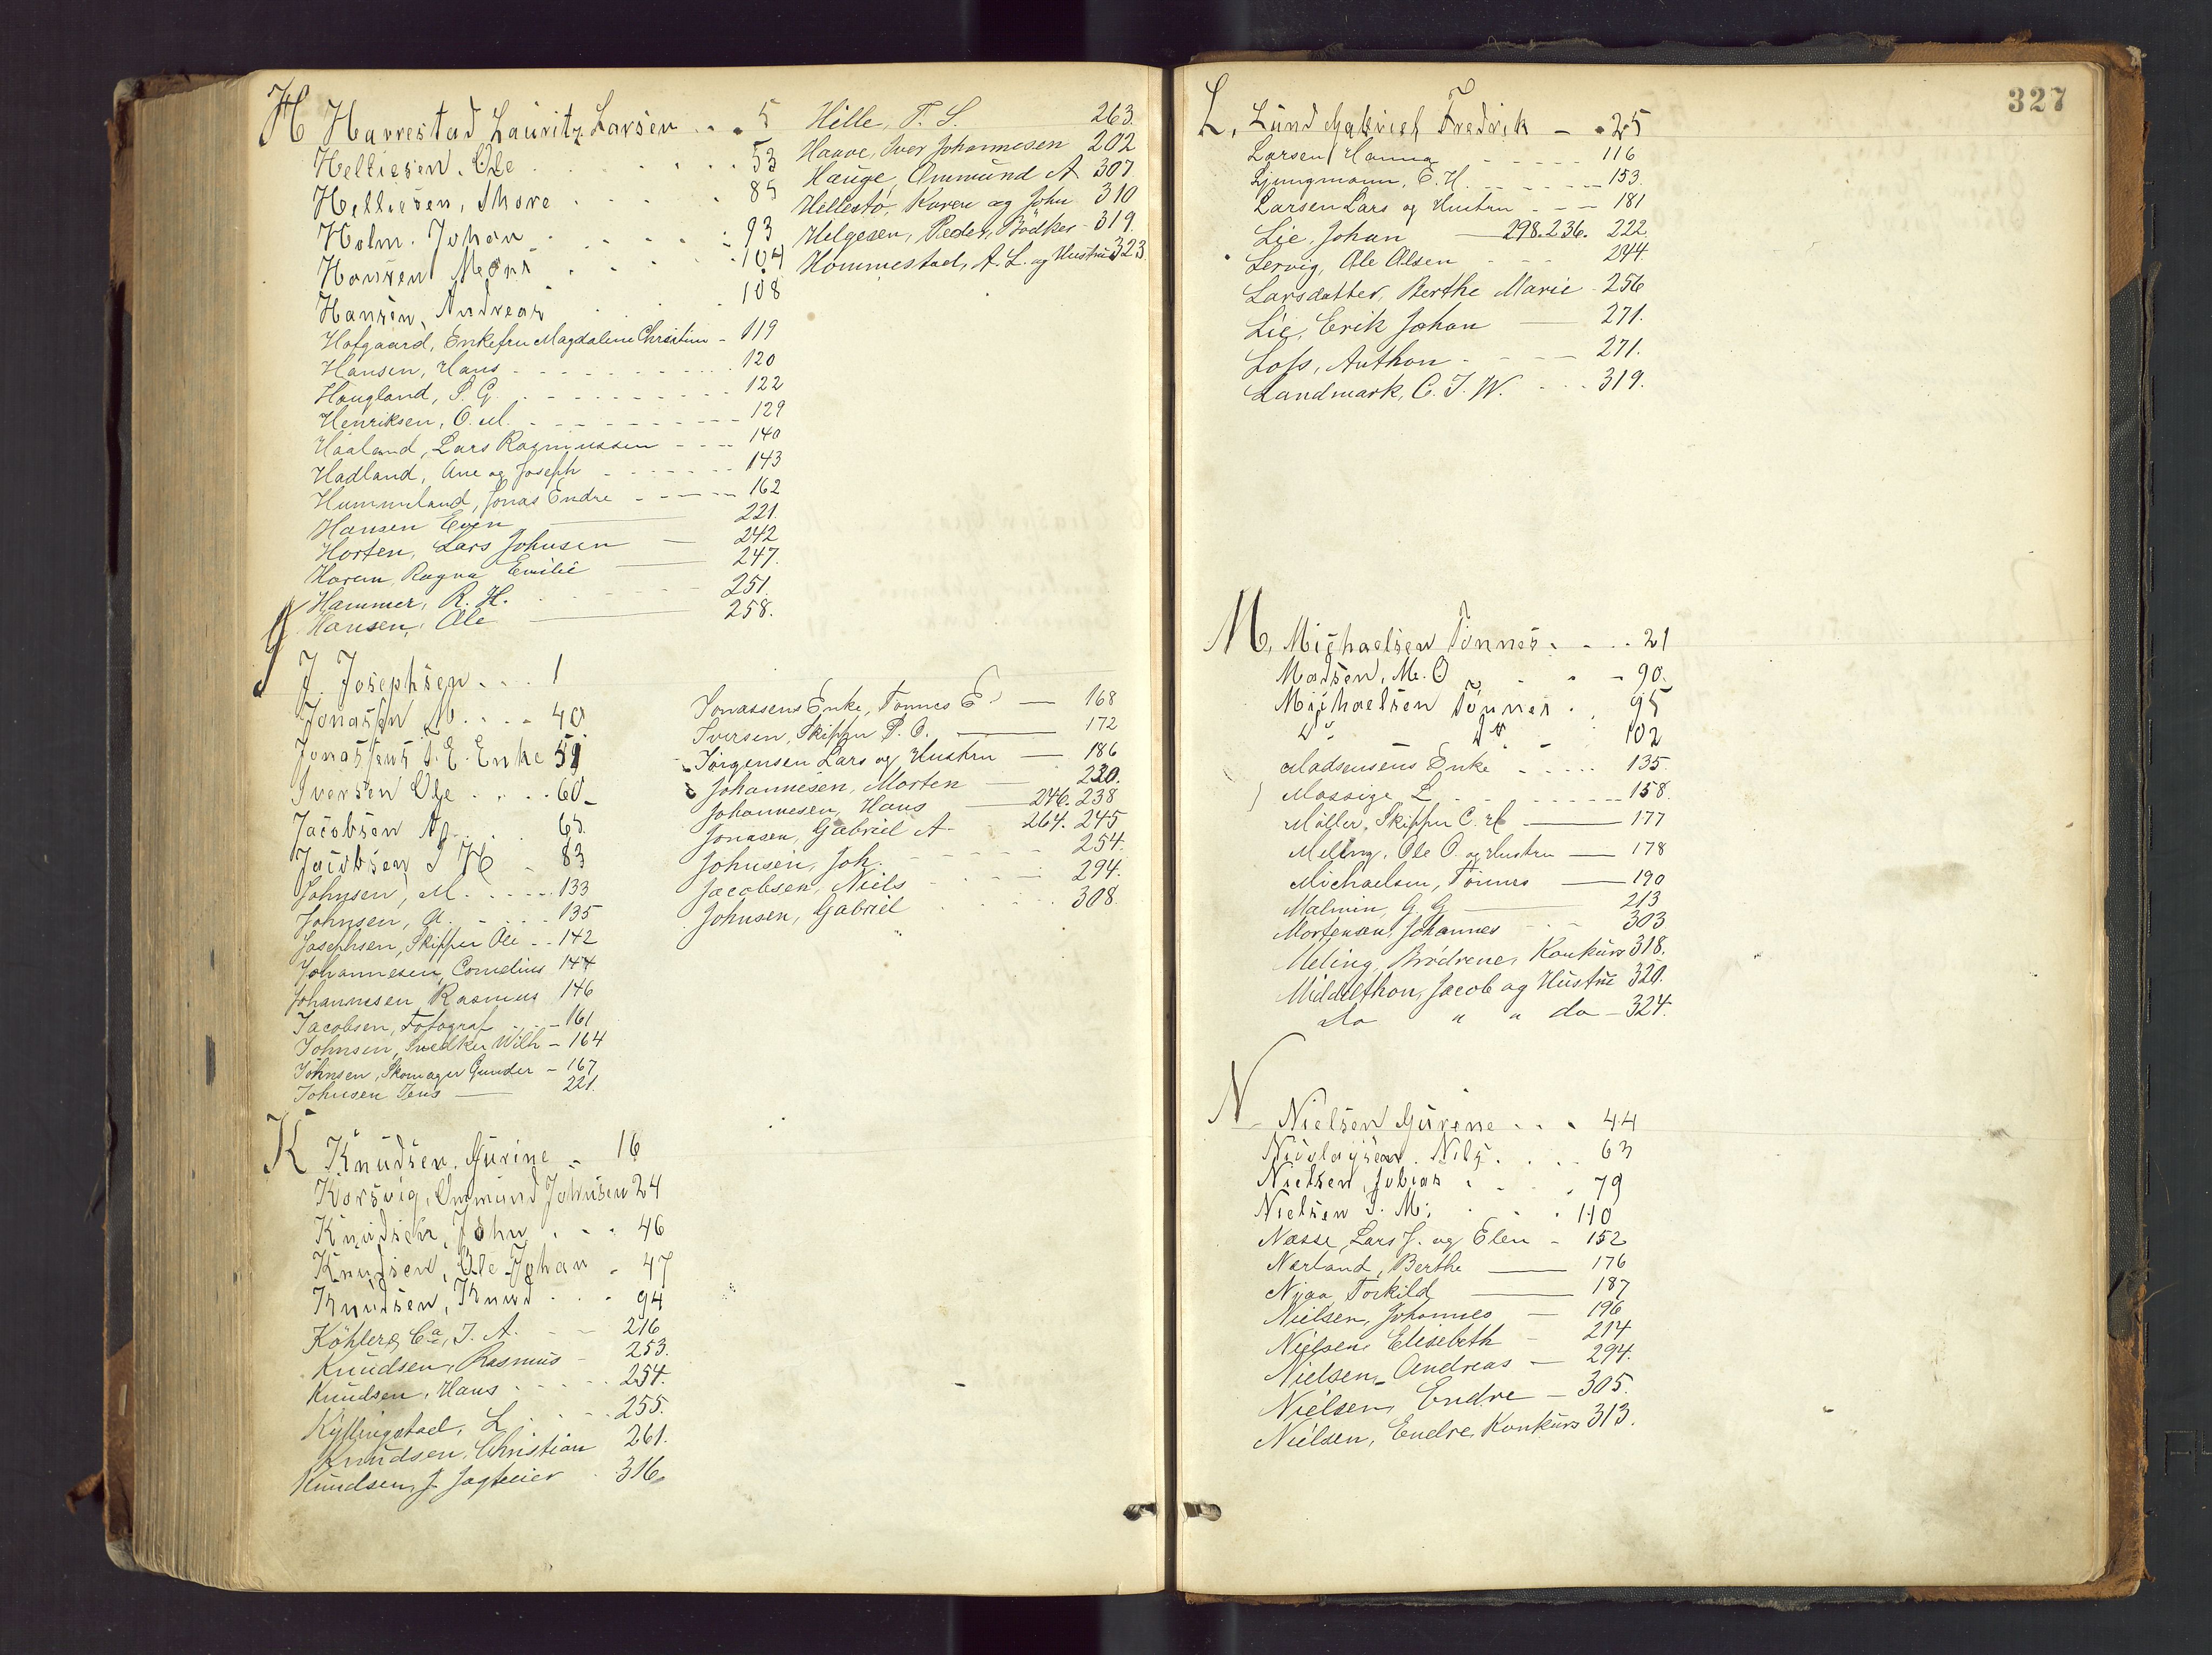 H Harrestad Lauritz Larsen . . . 5
Helliesen, Ole . . . 53
Helliesen, Thore . . . 85
Holm. Johan . . . 93
Hansen . . . 104
Hansen, Andreas . . . 108
Hofgaard, Enkefru Magdalene Christine - 119
Hansen, Hans - - - 120
Haugland, P. G. - - - 122
Henriksen, O. M. - - - 129
Haaland, Lars Rasmussen - - - 140
Hadland, Ane og Joseph - - - 143
Hummeland, Jonas Endre - - - 162
Hansen Even — 221.
Horten, Lars Johnsen — 242
Harem, Ragna Emilie — 247.
Hammer, R. H. - - - 251.
Hansen, Ole — 258.
Hille, T. S. 263.
Haave, Iver Johannesen 202
Hauge, Ommund A 307.
Hellestö, Karen og John 310
Helgesen, Peder, Bödker - 319.
Hommestad, A. L. og Hustru 323.
J J. Josephsen . . . 1
Jonasen M. . . . 40
Jonassens T. E. Enke 51
Iversen Ole . . . 60 -
Jacobsen . . . 65.
Jacobsen I H - 83
Johnsen, M. - - - 133
Johnsen, A. - - - 135
Josephsen, Skipper Ole - - 142
Johannesen, Cornelius 144
Johannesen, Rasmus 146
Jacobsen, Fotograf - - 161
Johnsen, Snedker Wilh - 164
Johnsen, Skomager Gunder - 167
Johnsen Jens — 221.
Jonassens Enke, Tönnes E. — 168
Iversen, Skipper P. O. — 172
Jörgensen Lars og Hustru — 186
Johannesen, Morten — 220.
Johannesen, Hans — 246. 238
Jonasen, Gabriel A - 264. 245
Johnsen, Joh. - - - 254.
Jacobsen, Niels - - - 294.
Johnsen, Gabriel . . . 308.
K Knudsen, Gurine - 16
Korsvig, Ommund Johnsen 24
Knudsen, John . . . 46
Knudsen, Ole Johan - 47
Knudsen, Knud . . . 94
Köhler & Co, J. A. - - 216
Knudsen, Rasmus - 253.
Knudsen, Hans - - - 254.
Kyllingstad, L - - - 255.
Knudsen, Christian 261.
Knudsen, J. Jagteier . 316.
327
L, Lund Gabriel Fredrik - . 25
Larsen, Hanna - - - 116
Ljungmann, E. H. - - - 153.
Larsen Lars og Hustru - - - 181
Lie, Johan — 298. 236. 222.
Lervig, Ole Olsen - - - 244.
Larsdatter, Berthe Marie - 256
Lie, Erik Johan — 271.
Loss, Anthon - - - 271.
Landmark, C. J. W. - - - 319.
M, Michaelsen Tönnes . . . 21
Madsen, M. O. . . . 90.
Michaelsen Tönnes . . 95
Do Do 102
Madsensens Enke - - - 135.
Massige L. - - - 158.
Möller, Skipper C. M — 177
Meling, Ole O. og Hustru — 178
Michaelsen, Tönnes — 190
Malmin, G. G. — 213
Mortensen, Johannes - - - 303
Meling, Brödrene, Konkurs 318.
Middelthon, Jacob og Hustru 320.
do " " do - 324.
N - Nielsen Gurine . . . 44
Nicolaysen. Nils. . . . 63
Nielsen, Tobias . . . 79
Nielsen I. M. . . . 110
Næsse, Lars J. og Elen - 152
Nærland, Berthe — 176
Njaa, Torkild — 187
Nielsen, Johannes — 196
Nielsen, Elisebeth - 214
Nielsen, Andreas — 294.
Nielsen, Endre — 305.
Nielsen, Endre, Konkurs 313.